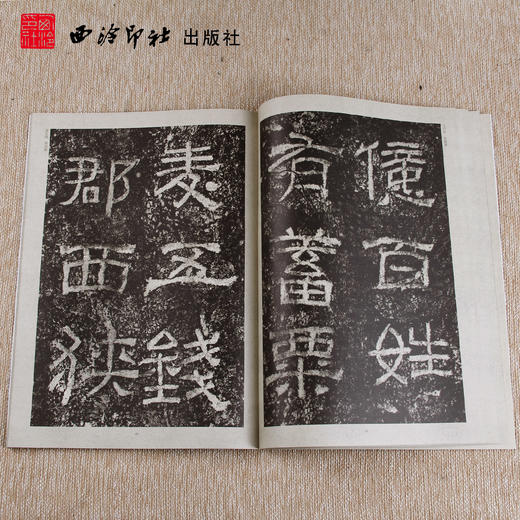 西泠印社 出版社
億百姓
有蓄粟
麦五錢
郡西狹